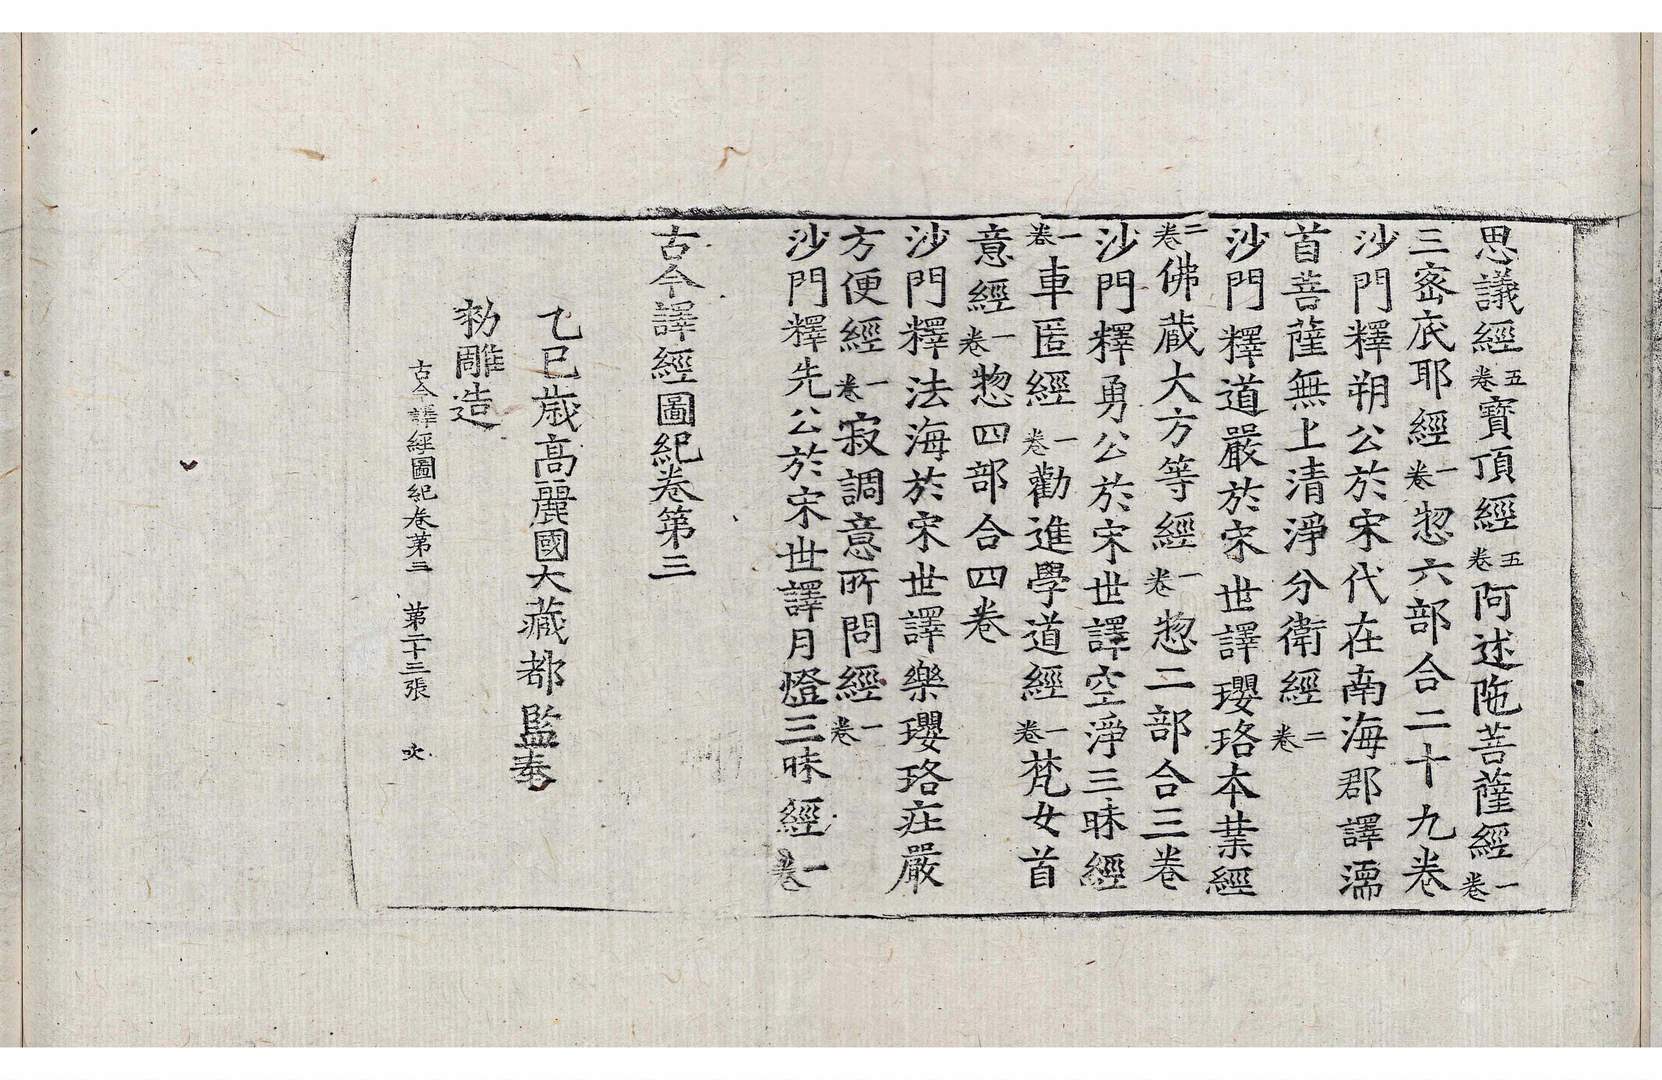 思議經五卷寶頂經五卷阿述陁菩薩經一卷
三密底耶經一卷惣六部合二十九卷
沙門釋朔公於宋代在南海郡譯濡
首菩薩無上清淨分衛經二卷
沙門釋道嚴於宋世譯瓔珞本葉經
二卷佛藏大方等經一卷惣二部合三卷
沙門釋勇公於宋世譯空淨三昧經
一卷車匿經一卷勸進學道經一卷梵女首
意經一卷惣四部合四卷
沙門釋法海於宋世譯樂瓔珞莊嚴
方便經一卷寂調意所問經一卷
沙門釋先公於宋世譯月燈三昧經一卷
古今譯經圖紀卷第三
乙巳歲高麗國大藏都監奉
勑雕造
古今譯經圖紀卷第三　第二十三張